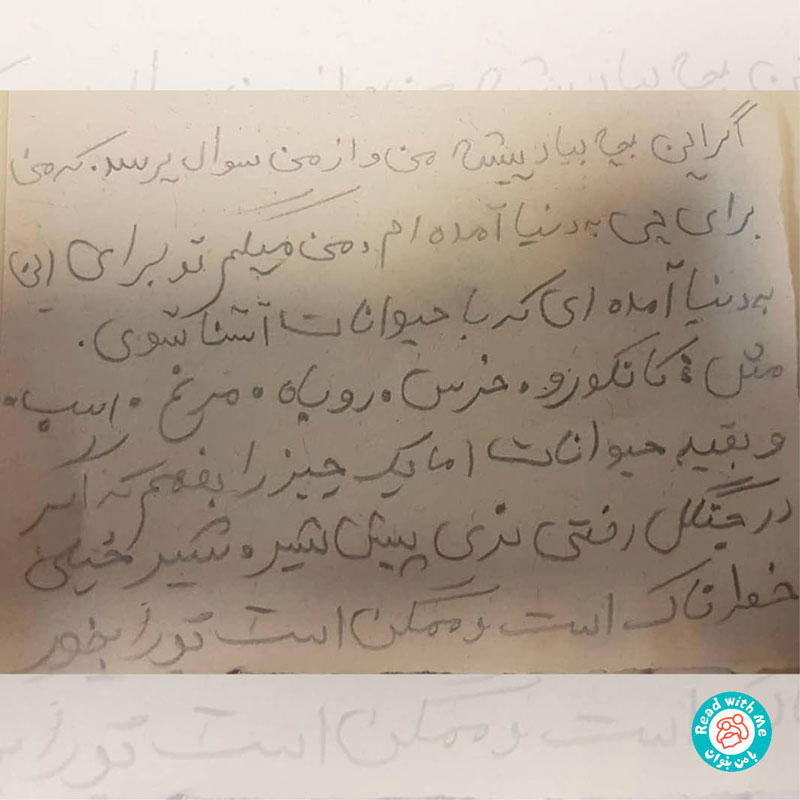 اگر این بچه بیاد پیشه من و از من سوال پرسد. که من
برای چی به دنیا آمده ام. من میگم تو برای این
به دنیا آمده ای که با حیوانات آشنا شوی.
مثل: کانکورو. خرس. روباه. مرغ. اسب.
و بقیه حیوانات اما یک چیز را بفهم که اگر
در جنگل رفتی نری پیش شیر. شیر خیلی
خطرناک است و ممکن است تو را بخور
Read with Me
با من بخوان